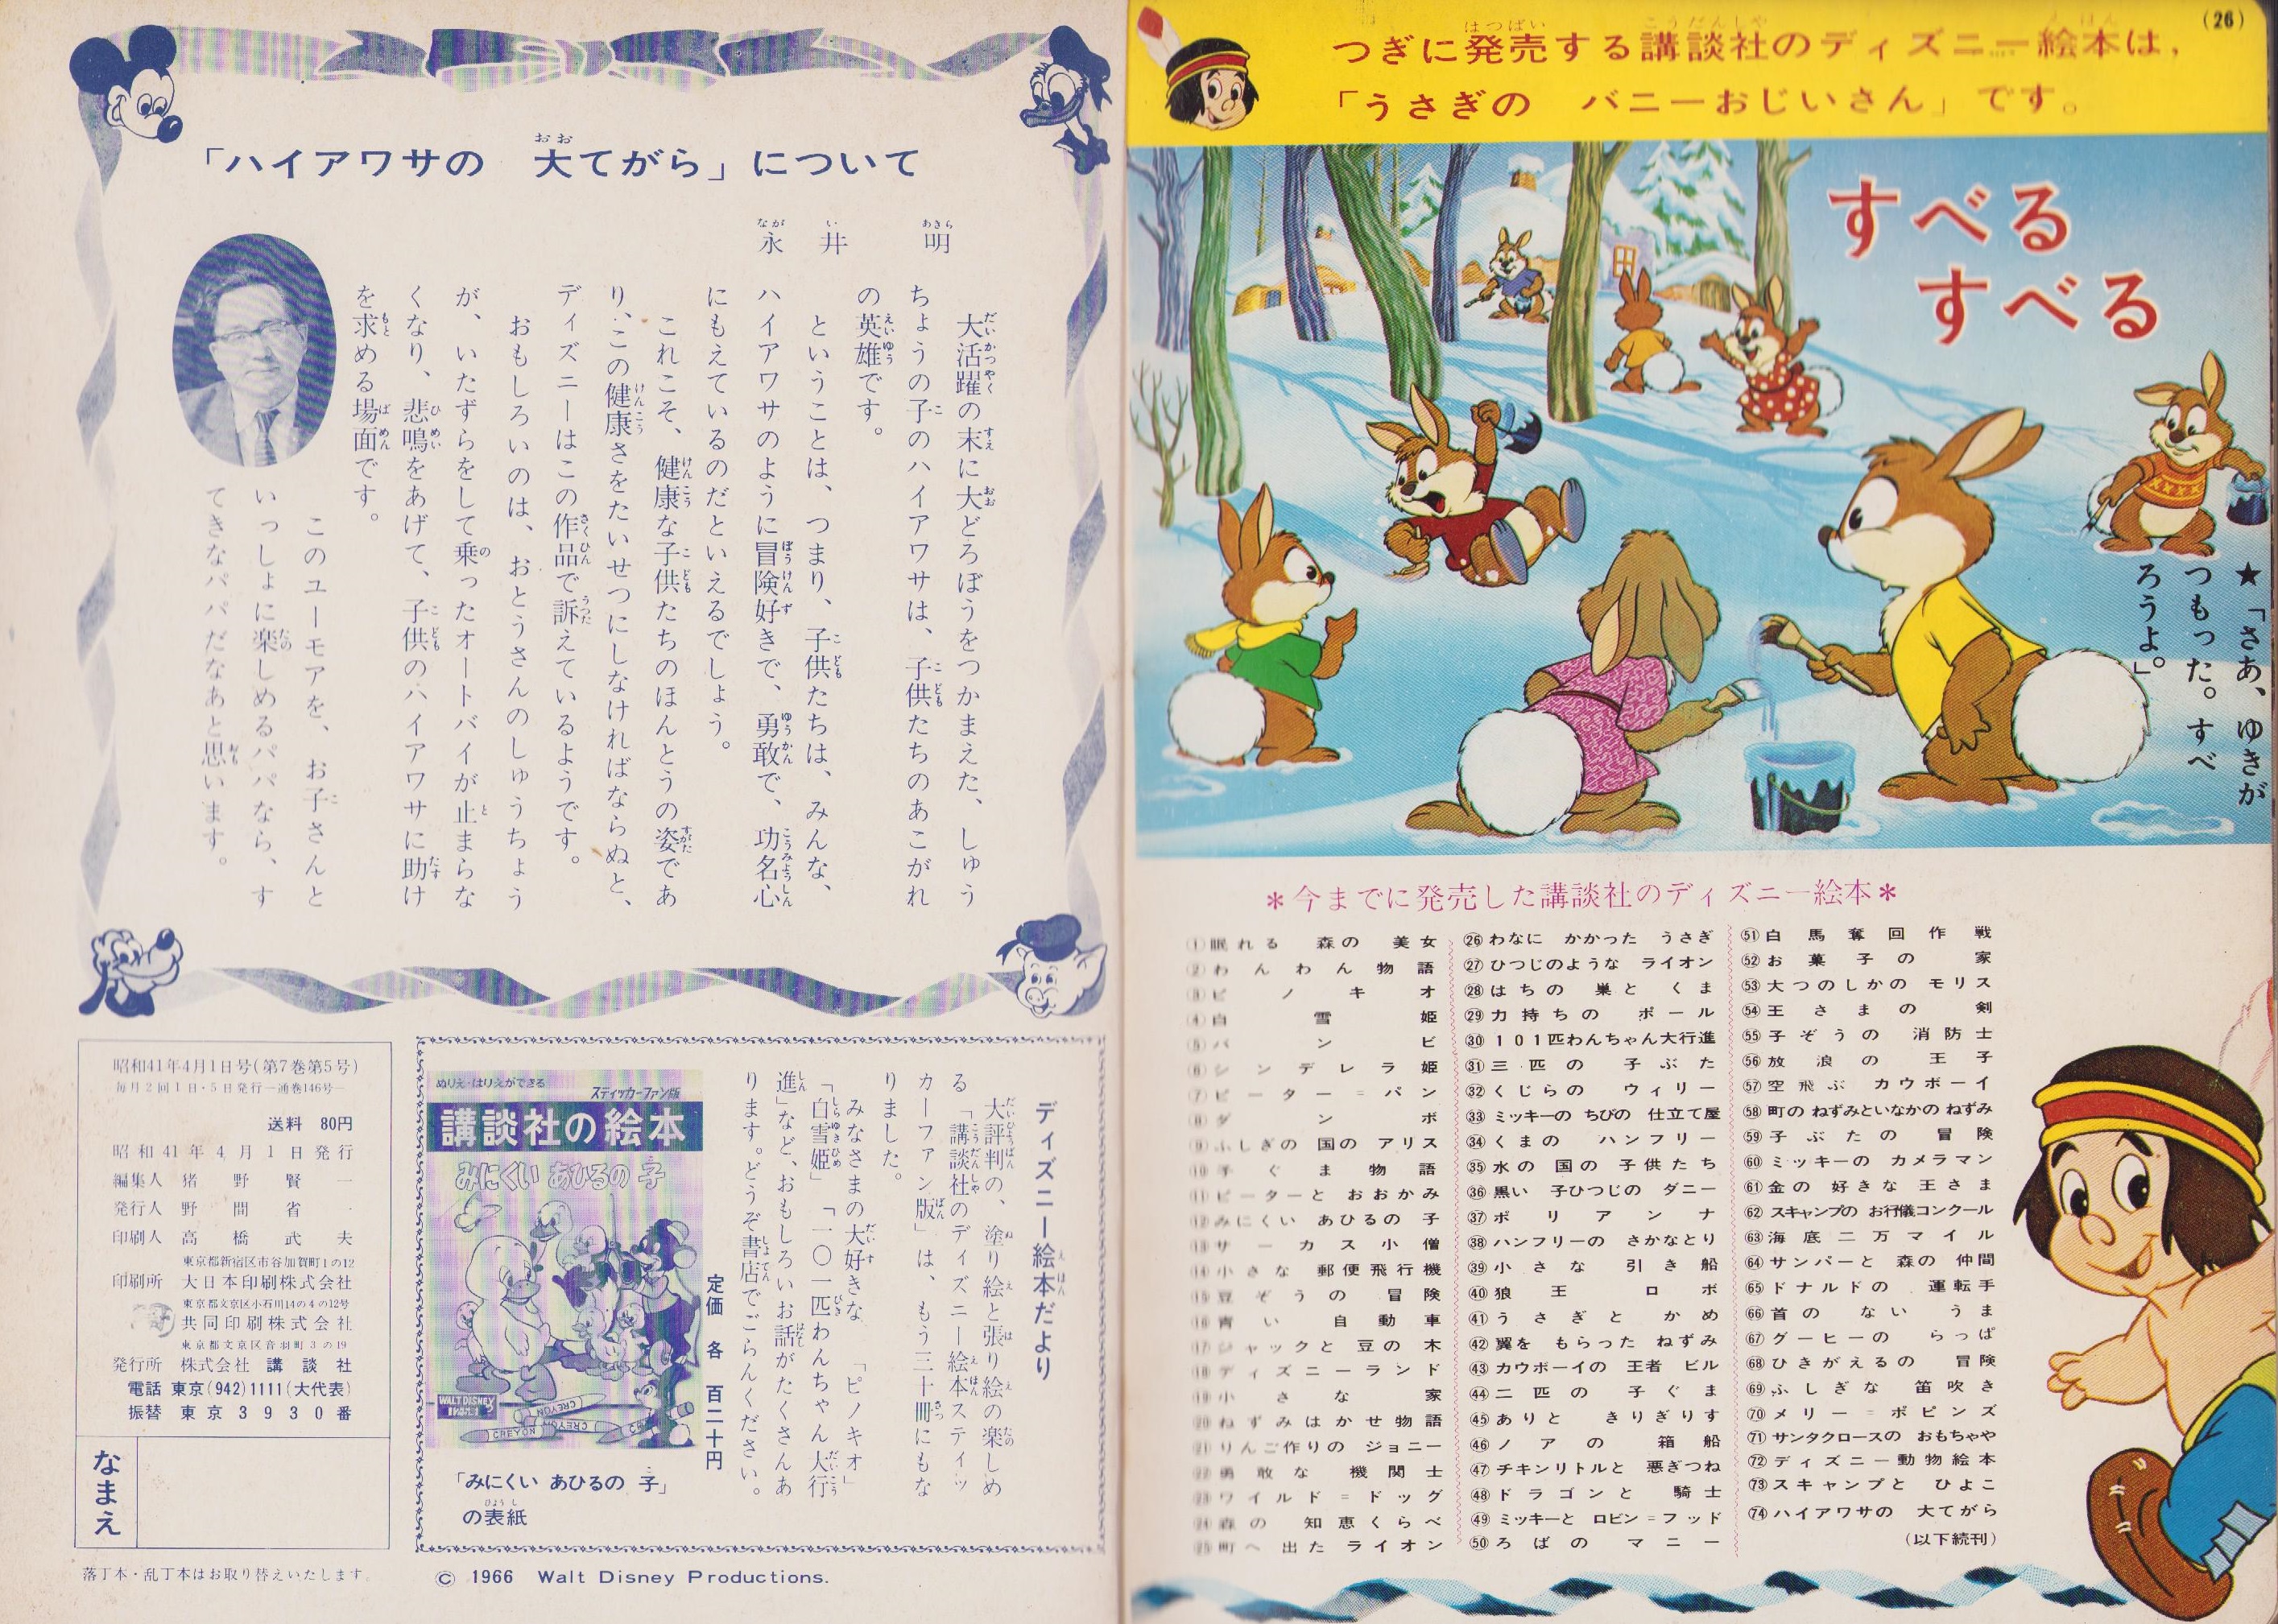 「ハイアワサの 大てがら」について
永井 明
大活躍の末に大どろぼうをつかまえた、しゅう
ちょうの子のハイアワサは、子供たちのあこがれ
の英雄です。
ということは、つまり、子供たちは、みんな、
ハイアワサのように冒険好きで、勇敢で、功名心
にもえているのだといえるでしょう。
これこそ、健康な子供たちのほんとうの姿であ
り、この健康さをたいせつにしなければならぬと、
ディズニーはこの作品で訴えているようです。
おもしろいのは、おとうさんのしゅうちょう
が、いたずらをして乗ったオートバイが止まらな
くなり、悲鳴をあげて、子供のハイアワサに助け
を求める場面です。
このユーモアを、お子さんと
いっしょに楽しめるパパなら、す
てきなパパだなあと思います。
昭和41年4月1日号(第7巻第5号)
毎月2回1日・5日発行―通巻146号―
送料 80円
昭和41年4月1日発行
編集人 猪野賢一
発行人 野間省一
印刷人 高橋武夫
東京都新宿区市谷加賀町1の12
印刷所 大日本印刷株式会社
東京都文京区小石川14の4の12号
共同印刷株式会社
東京都文京区音羽町3の19
発行所 株式会社 講談社
電話 東京(942)1111(大代表)
振替 東京3930番
なまえ
落丁本・乱丁本はお取り替えいたします。
ディズニー絵本だより
大評判の、塗り絵と張り絵の楽しめ
る「講談社のディズニー絵本スティッ
カーファン版」は、もう三十冊にもな
りました。
みなさまの大好きな「ピノキオ」
「白雪姫」「一〇一匹わんちゃん大行
進」など、おもしろいお話がたくさんあ
ります。どうぞ書店でごらんください。
定価 各 百二十円
ぬりえ・はりえができる
スティッカーファン版
講談社の絵本
みにくい あひるの 子
WALT DISNEY
CREYON
CREYON
CREYON
「みにくい あひるの 子」
の表紙
© 1966 Walt Disney Productions.
(26)
つぎに発売する講談社のディズニー絵本は,
「うさぎの バニーおじいさん」です。
すべる
すべる
★「さあ、ゆきが
つもった。すべ
ろうよ。」
*今までに発売した講談社のディズニー絵本*
①眠れる 森の 美女
②わんわん物語
③ピノキオ
④白雪姫
⑤バンビ
⑥シンデレラ姫
⑦ピーター＝パン
⑧ダンボ
⑨ふしぎの 国の アリス
⑩子ぐま物語
⑪ピーターと おおかみ
⑫みにくい あひるの 子
⑬サーカス小僧
⑭小さな 郵便飛行機
⑮豆ぞうの 冒険
⑯青い 自動車
⑰ジャックと 豆の 木
⑱ディズニーランド
⑲小さな 家
⑳ねずみはかせ物語
㉑りんご作りの ジョニー
㉒勇敢な 機関士
㉓ワイルド＝ドッグ
㉔森の 知恵くらべ
㉕町へ 出た ライオン
㉖わなに かかった うさぎ
㉗ひつじのような ライオン
㉘はちの 巣と くま
㉙力持ちの ポール
㉚101匹わんちゃん大行進
㉛三匹の 子ぶた
㉜くじらの ウィリー
㉝ミッキーの ちびの 仕立て屋
㉞くまの ハンフリー
㉟水の 国の 子供たち
㊱黒い 子ひつじの ダニー
㊲ポリアンナ
㊳ハンフリーの さかなとり
㊴小さな 引き船
㊵狼王 ロボ
㊶うさぎと かめ
㊷翼を もらった ねずみ
㊸カウボーイの 王者 ビル
㊹二匹の 子ぐま
㊺ありと きりぎりす
㊻ノアの 箱船
㊼チキンリトルと 悪ぎつね
㊽ドラゴンと 騎士
㊾ミッキーと ロビン＝フッド
㊿ろばの マニー
51白馬奪回作戦
52お菓子の 家
53大つのしかの モリス
54王さまの 剣
55子ぞうの 消防士
56放浪の 王子
57空飛ぶ カウボーイ
58町の ねずみといなかの ねずみ
59子ぶたの 冒険
60ミッキーの カメラマン
61金の 好きな 王さま
62スキャンプの お行儀コンクール
63海底二万マイル
64サンバーと 森の 仲間
65ドナルドの 運転手
66首の ない うま
67グーヒーの らっぱ
68ひきがえるの 冒険
69ふしぎな 笛吹き
70メリー＝ポピンズ
71サンタクロースの おもちゃや
72ディズニー動物絵本
73スキャンプと ひよこ
74ハイアワサの 大てがら
(以下続刊)